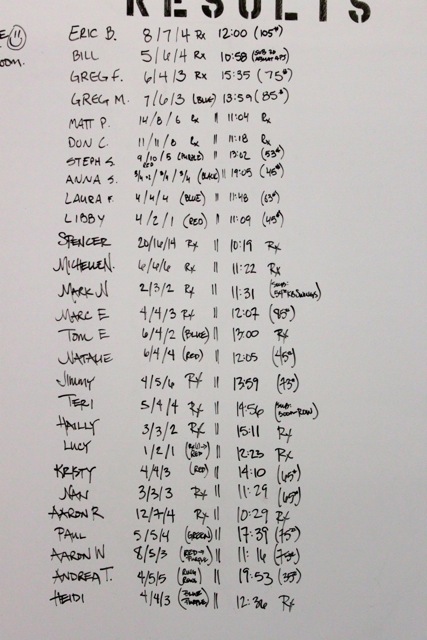 RESULTS
ERIC B. 8/7/4 Rx 12:00 (105#)
BILL 5/6/4 Rx 10:58
GREG F. 6/4/3 Rx 15:35 (75#)
GREG M. 7/6/3 (BLUE) 13:59 (85#)
MATT P. 14/8/6 Rx || 11:04 Rx
DON C. 11/11/8 Rx || 11:18 Rx
STEPH S. 9/10/5 (PURPLE) || 13:02 (53#)
ANNA S. (BLACK) || 19:05 (45#)
LAURA F. 4/4/4 (BLUE) || 11:48 (63#)
LIBBY 4/2/1 (RED) || 11:09 (45#)
SPENCER 20/16/14 Rx || 10:19 Rx
MICHELLE N. 6/6/6 Rx || 11:22 Rx
MARK N 2/3/2 Rx || 11:31 (SUB:
MARC E 4/4/3 Rx || 12:07 (85#)
TOM E 6/4/2 (BLUE) || 13:00 Rx
NATALIE 6/4/4 (RED) || 12:05 (45#)
JIMMY 4/5/6 Rx || 13:59 (73#)
TERI 5/4/4 Rx || 14:56 (SUB: 500M ROW)
HAILLY 3/3/2 Rx || 15:11 Rx
LUCY 1/2/1 || 12:23 Rx
KRISTY 4/4/3 (RED) || 14:10 (65#)
NAN 3/3/3 Rx || 11:29 (65#)
AARON R 12/7/4 Rx || 10:29 Rx
PAUL 5/5/4 (GREEN) || 17:39 (75#)
AARON W 8/5/3 (RED→ PURPLE) || 11:16 (75#)
ANDREA T. 4/5/5 || 19:53 (35#)
HEIDI 4/4/3 (BLUE PURPLE) || 12:36 Rx